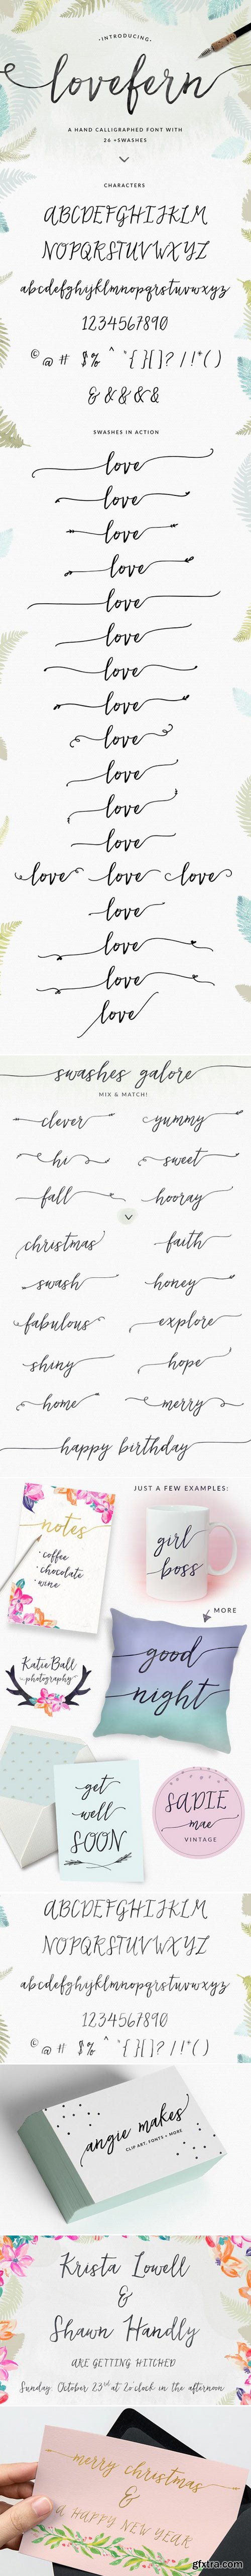 • INTRODUCING •
lovefern
A HAND CALLIGRAPHED FONT WITH
26 +SWASHES
CHARACTERS
ABCDEFGHIJKLM
NOPQRSTUVWXYZ
abcdefghijklmnopqrstuvwxyz
1234567890
© @ # $% ^ *{}[]? / | !*( )
& & & & &
SWASHES IN ACTION
love
love
love
love
love
love
love
love
love
love
love
love
love love love
love
love
love
love
swashes galore
MIX & MATCH!
clever yummy
hi sweet
fall hooray
christmas faith
swash honey
fabulous explore
shiny hope
home merry
happy birthday
JUST A FEW EXAMPLES:
notes
• coffee
• chocolate
• wine
girl
boss
MORE
Katie Ball
photography
good
night
get
well
SOON
SADIE
mae
VINTAGE
ABCDEFGHIJKLM
NOPQRSTUVWXYZ
abcdefghijklmnopqrstuvwxyz
1234567890
© @ # $% ^ *{}[]? / | !*( )
angie makes
CLIP ART, FONTS + MORE
Krista Lowell
&
Shawn Handly
ARE GETTING HITCHED
Sunday, October 23rd at 2o'clock in the afternoon
merry christmas
&
a HAPPY NEW YEAR
gfxtra.com